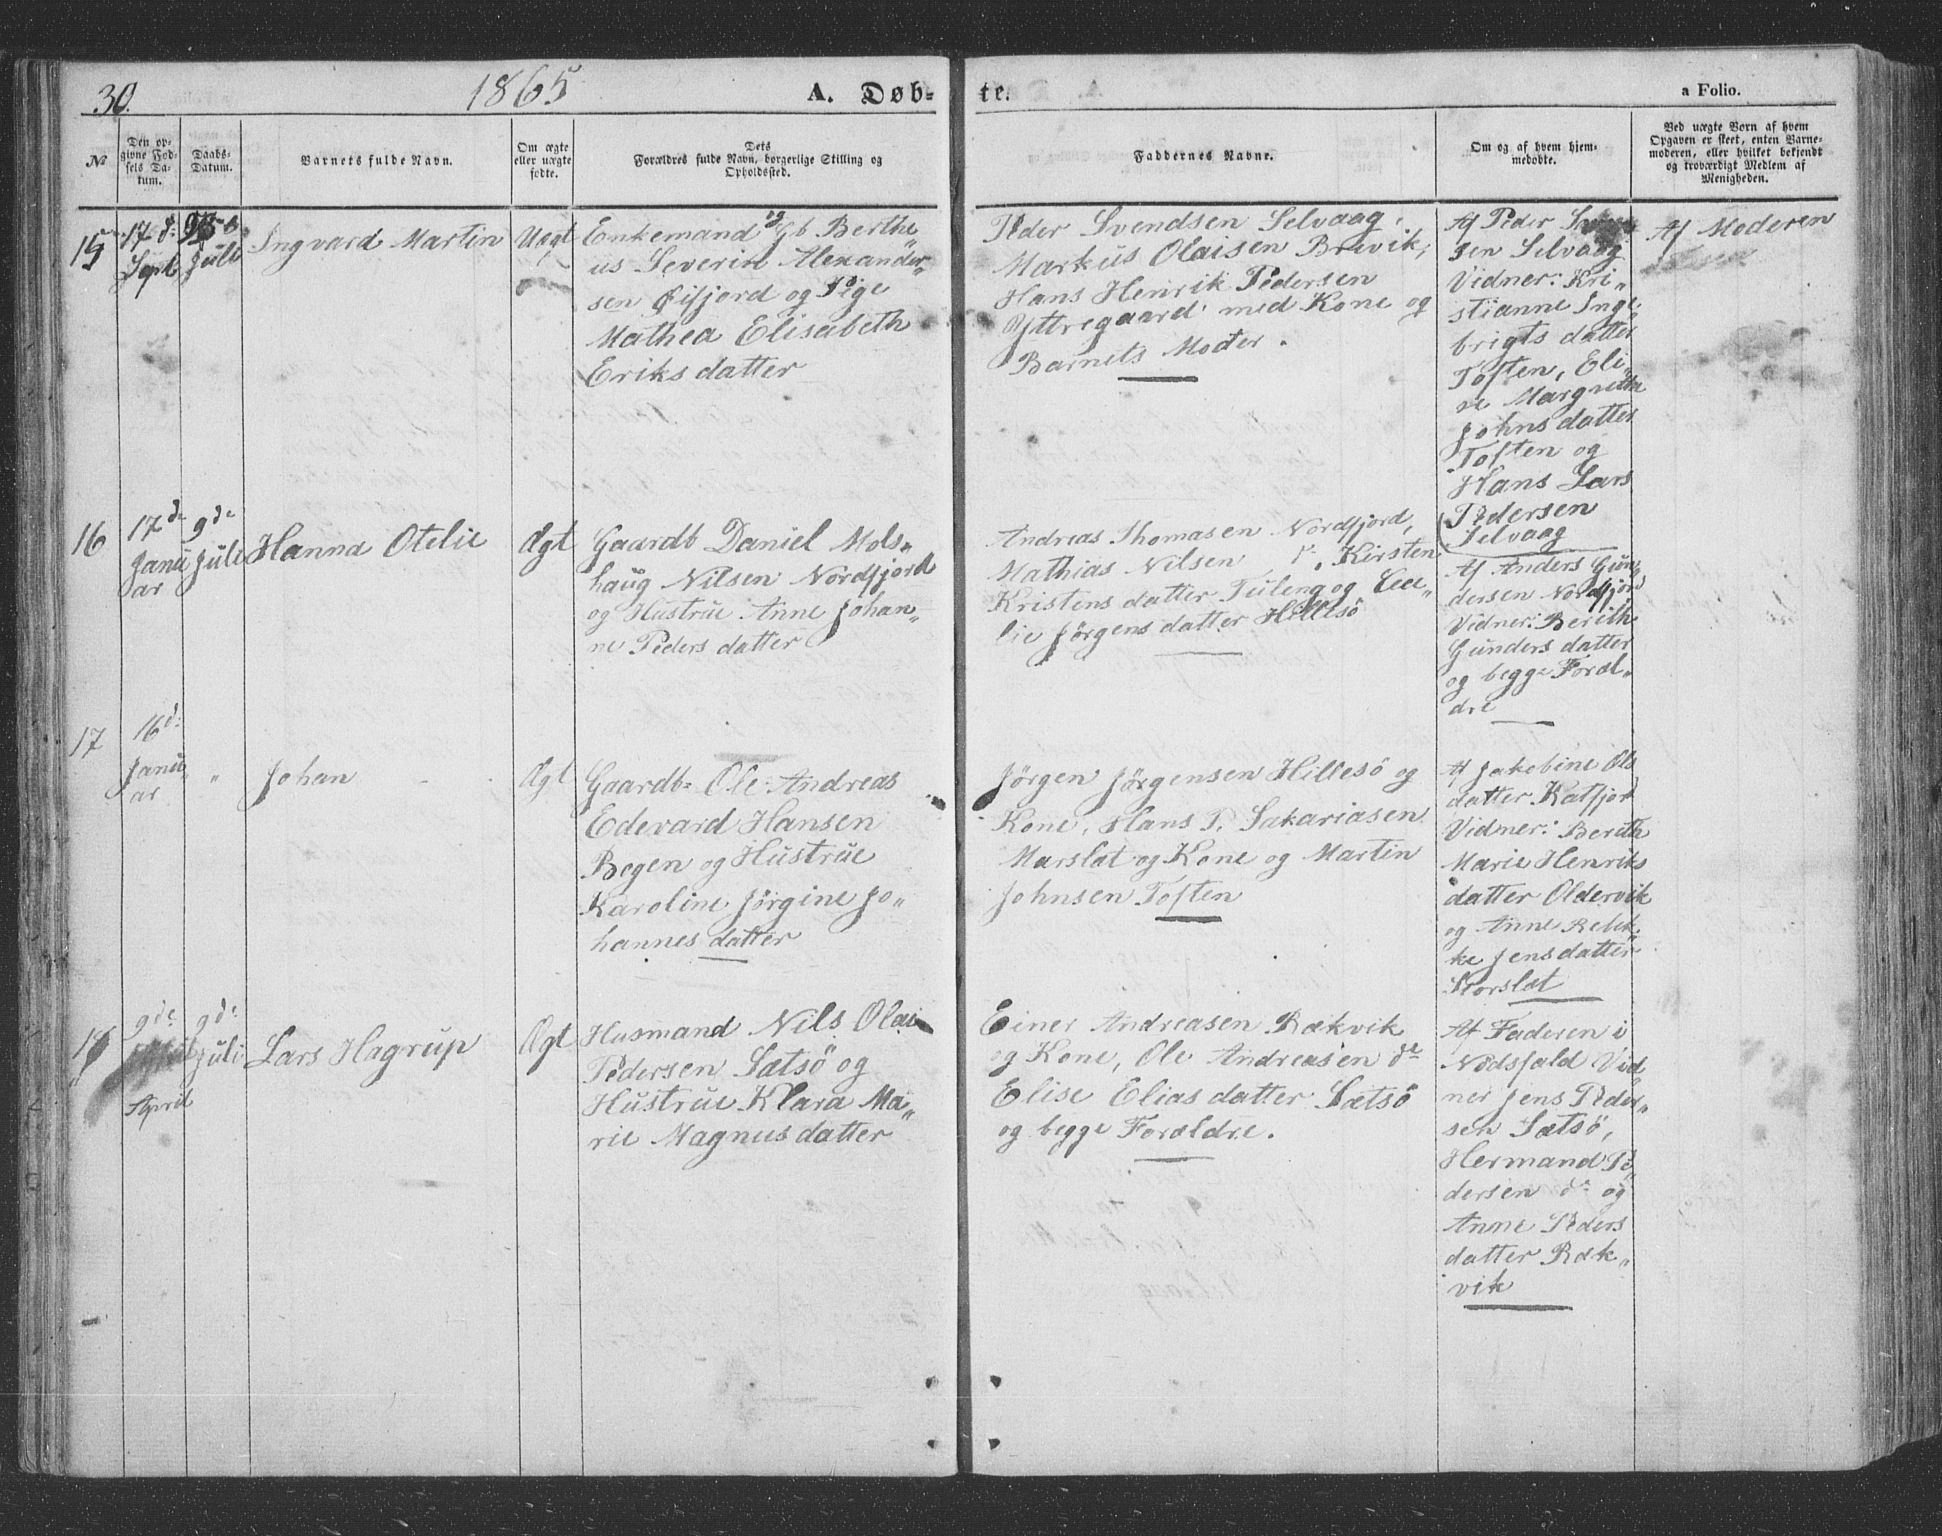 30.
1865
A. Døb-
te.
a Folio.
№
Den op-
givne Fød-
sels Da-
tum.
Daabs-
Datum.
Barnets fulde Navn.
Om ægte
eller uægte
fødte.
Dets
Forældres fulde Navn, borgerlige Stilling og
Opholdssted.
Faddernes Navne.
Om og af hvem hjem-
medøbte.
Ved uægte Born af hvem
Opgaven er skeet, enten Barne-
moderen, eller hvilket bekjendt
og troværdigt Medlem af
Menigheden.
15
17 d:
Sept
Juli
Ingvard Martin
Uægt
Enkemand og Gb Berthe
us Severin Alexander„
sen Øifjord og Pige
Mathea Elisabeth
Eriks datter
Peder Svendsen Selvaag,
Markus Olaisen Brevik,
Hans Henrik Pedersen
Yttregaard med Kone og
Barnets Moder.
Af Peder
sen Selvaag
Vidner: Kri„
stianne Inge„
brigts datter
Toften, Eli„
se Margrethe
Johns datter
Toften og
Hans Lars
Pedersen
Selvaag
Af Moderen
16
17 de
Janu
ar
9 de
Juli
Hanna Otelie
Ægt
Gaardb Daniel Mols„
haug Nilsen Nordfjord
og Hustrue Anne Johan„
ne Peders datter
Andreas Thomasen Nordfjord,
Mathias Nilsen d:, Kirsten
Kristens datter Tuleng og Cec„
lie Jørgens datter Hillesö
Af Anders Gun„
dersen Nordfjord
Vidner: Bereth
Gunders datter
og begge Foræl„
dre
17
16 d:
Janu
ar
„
Johan
Ægt
Gaardb: Ole Andreas
Edevard Hansen
Bogen og Hustrue
Karoline Jørgine Jo„
hannes datter
Jørgen Jørgensen Hillesö og
Kone, Hans P. Sakariasen
Marslæt og Kone og Martin
Johnsen Toften
Af Jakobine Ols
datter Katfjord
Vidner: Bereth
Marie Henriks
datter Oldervik
og Anne Rebek„
ke Jens datter
Storslæt
18
9 de
April
9 de
Juli
Lars Hagrup
Ægt
Husmand Nils Olai
Pedersen Sætsö og
Hustrue Klara Ma„
rie Magnus datter
Einer Andreasen Rækvik
og Kone, Ole Andreasen de
Elise Elias datter Sætsö
og begge Forældre.
Af Faderen i
Nødsfald Vid„
ner Jens Peder„
sen Sætsö,
Hermand Pe„
dersen d: og
Anne Peders
datter Ræk„
vik